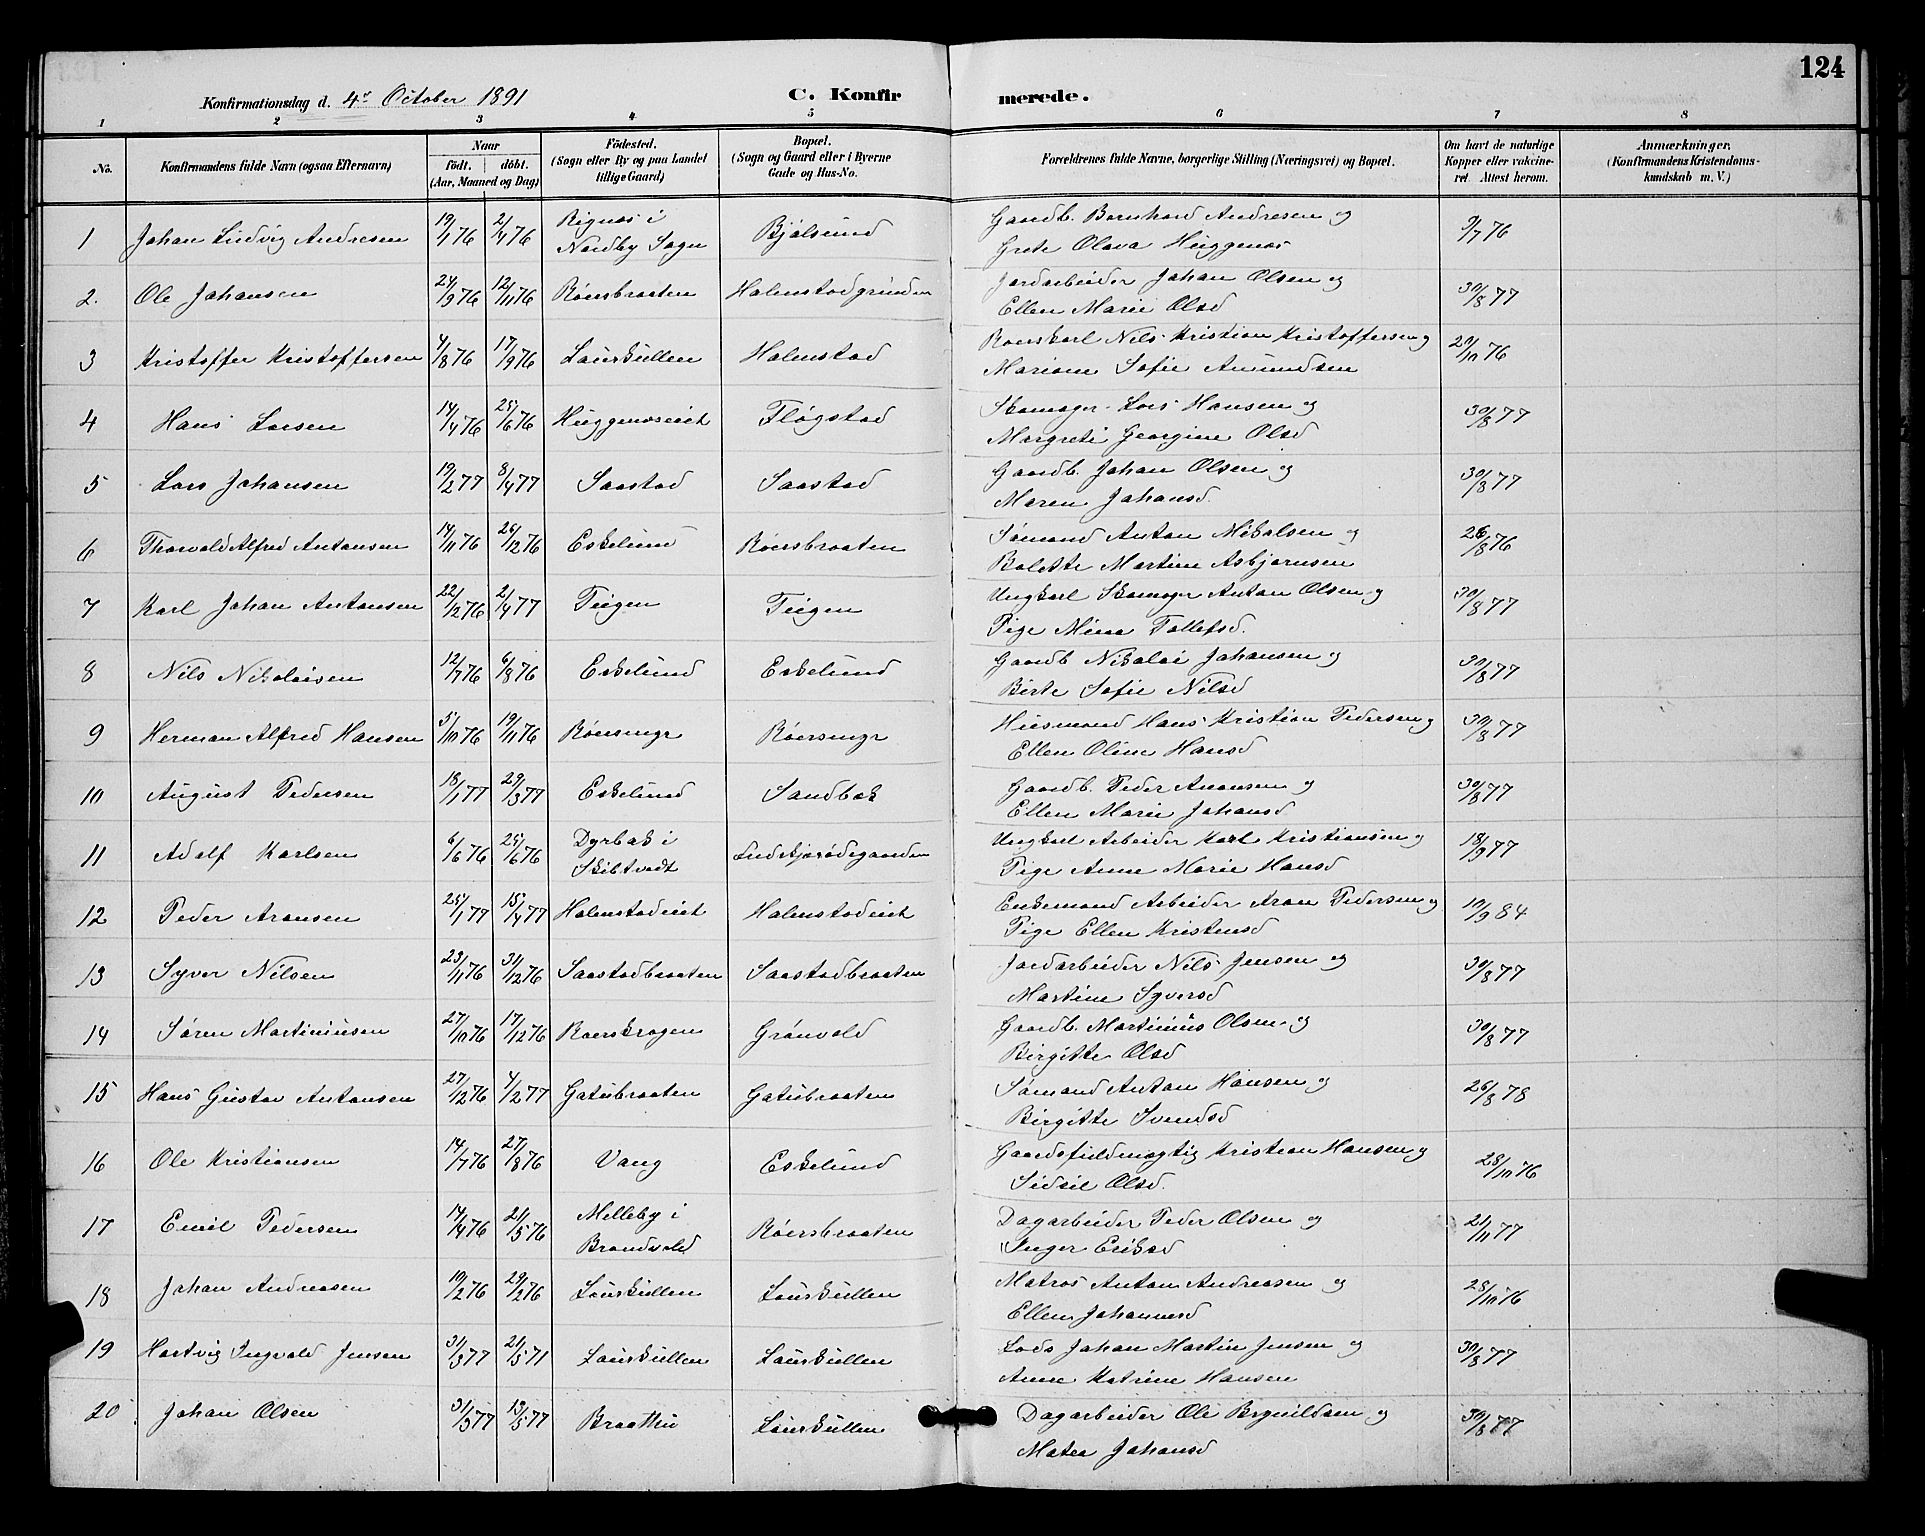 124
Konfirmationsdag d. 4de October 1891 C. Konfirmerede.
1 2 3 4 5 6 7 8
No. Konfirmandens fulde Navn (ogsaa Efternavn) Naar födt. döbt. (Aar, Maaned og Dag) Födested. (Sogn eller By og paa Landet tillige Gaard) Bopæl. (Sogn og Gaard eller i Byerne Gade og Hus-No. Forældrenes fulde Navne, borgerlige Stilling (Næringsvei) og Bopæl. Om havt de naturlige Kopper eller vakcineret Attest herom. Anmærkninger. (Konfirmandens Kristendomskundskab m. V.)
1 Johan Ludvig Andresen 19/1 76 2/4 76 Rignæs i Nordby Sogn Bjølsund Gaardb. Bernhard Andresen og Grete Olava Huggenæs 9/7 76
2. Ole Johansen 24/9 76 12/11 76 Roersbraaten Halmstadgrunden Jordarbeider Johan Olsen og Ellen Marie Olsd 30/8 77
3 Kristoffer Kristoffersen 4/8 76 17/9 76 Laurkullen Halmstad Nils Kristian Kristoffersen og Mariane Sofie Amundsen 29/10 76
4 Hans Larsen 14/4 76 25/6 76 Huggenæseiet Fløgstad Skomager Lars Hansen og Margrete Georgine Olsd 30/8 77
5 Lars Johansen 19/2 77 8/4 77 Saastad Saastad Gaardb. Johan Olsen og Maren Johansd. 30/8 77
6 Thorvald Alfred Antonsen 14/11 76 26/12 76 Eskelund Roersbraaten Sømand Anton Mikalsen og Bolette Martine Asbjørnsen 26/8 76
7 Karl Johan Antonsen 22/12 76 2/4 77 Teigen Teigen Ungkarl Skomager Anton Olsen og Pige Mina Tollefsd. 30/8 77
8 Nils Nikolaisen 12/7 76 6/8 76 Eskelund Eskelund Gaardb Nikolai Johansen og Birte Sofie Nilsd 30/8 77
9 Herman Alfred Hansen 5/10 76 19/11 76 Røersmyr Røersmyr Husmand Hans Kristian Pedersen og Ellen Oline Hansd 30/8 77
10 August Pedersen 18/1 77 29/3 77 Eskelund Sandbæk Gaardb. Peder Aronsen og Ellen Marie Johansd 30/8 77
11 Adolf Karlsen 6/6 76 25/6 76 Dyrbæk i Skibtvedt Ungkarl Arbeider Karl Kristiansen og Pige Anne Marie Hansd 18/9 77
12 Peder Aronsen 25/1 77 15/4 77 Halmstadeiet Halmstadeiet Enkemand Arbeider Aron Pedersen og Pige Ellen Kristensd 10/9 84
13 Syver Nilsen 23/11 76 31/12 76 Saastadbraaten Saastadbraaten Jordarbeider Nils Jensen og Martine Syversd 30/8 77
14 Søren Martiniusen 27/10 76 17/12 76 Roerskragen Grønvold Gaardb. Martinius Olsen og Birgitte Olsd 30/8 77
15 Hans Gustav Antonsen 27/12 76 4/2 77 Gatubraaten Gatubraaten Sømand Anton Hansen og Birgitte Svendsd 26/8 78
16 Ole Kristiansen 14/7 76 27/8 76 Vang Eskelund Gaardsfuldmægtig Kristian Hansen og Sidsil Olsd. 28/10 76
17 Emil Pedersen 14/4 76 21/5 76 Melleby i Brandvold Røersbraaten Dagarbeider Peder Olsen og Inger Eriksd 21/11 77
18 Johan Andreasen 10/2 76 29/2 76 Laurkullen Laurkullen Matros Anton Andreasen og Ellen Johannesd 28/10 76
19 Hartvig Ingvald Jensen 31/3 77 21/5 71 Laurkullen Laurkullen Lods Johan Martin Jensen og Anne Katrine Hansen 30/8 77
20 Johan Olsen 31/3 77 13/5 77 Braathu Laurkullen Dagarbeider Ole Brynildsen og Matea Johansd 30/8 77